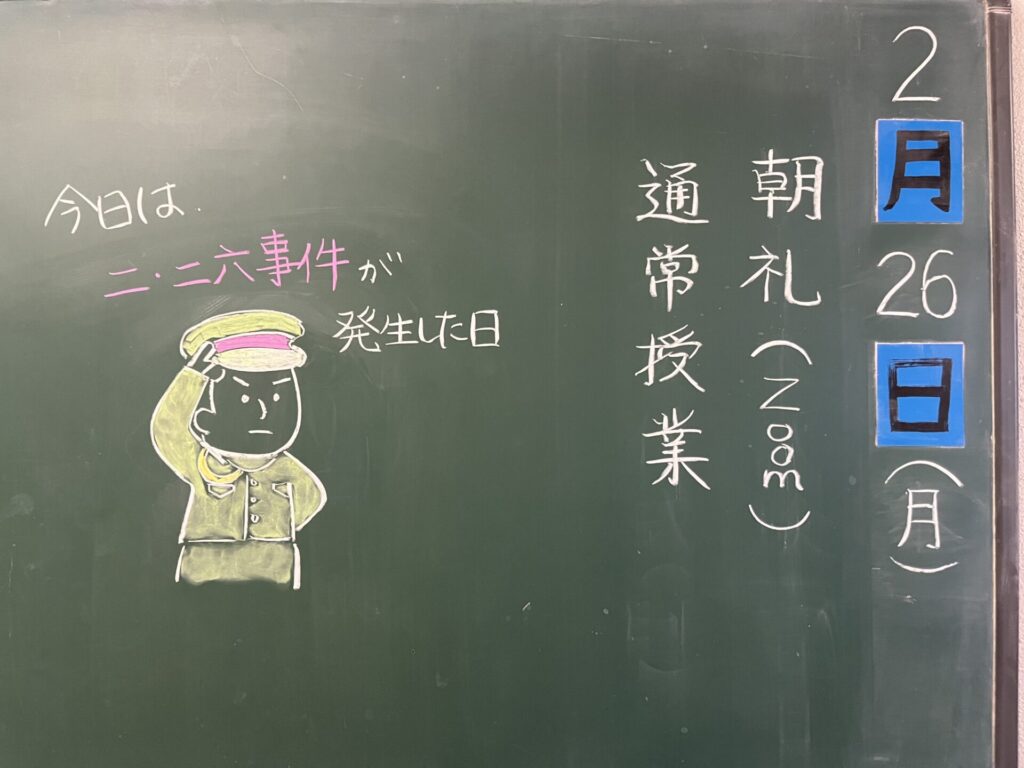 2月26日(月)
朝礼(Zoom)
通常授業
今日は.
二・二六事件が
発生した日